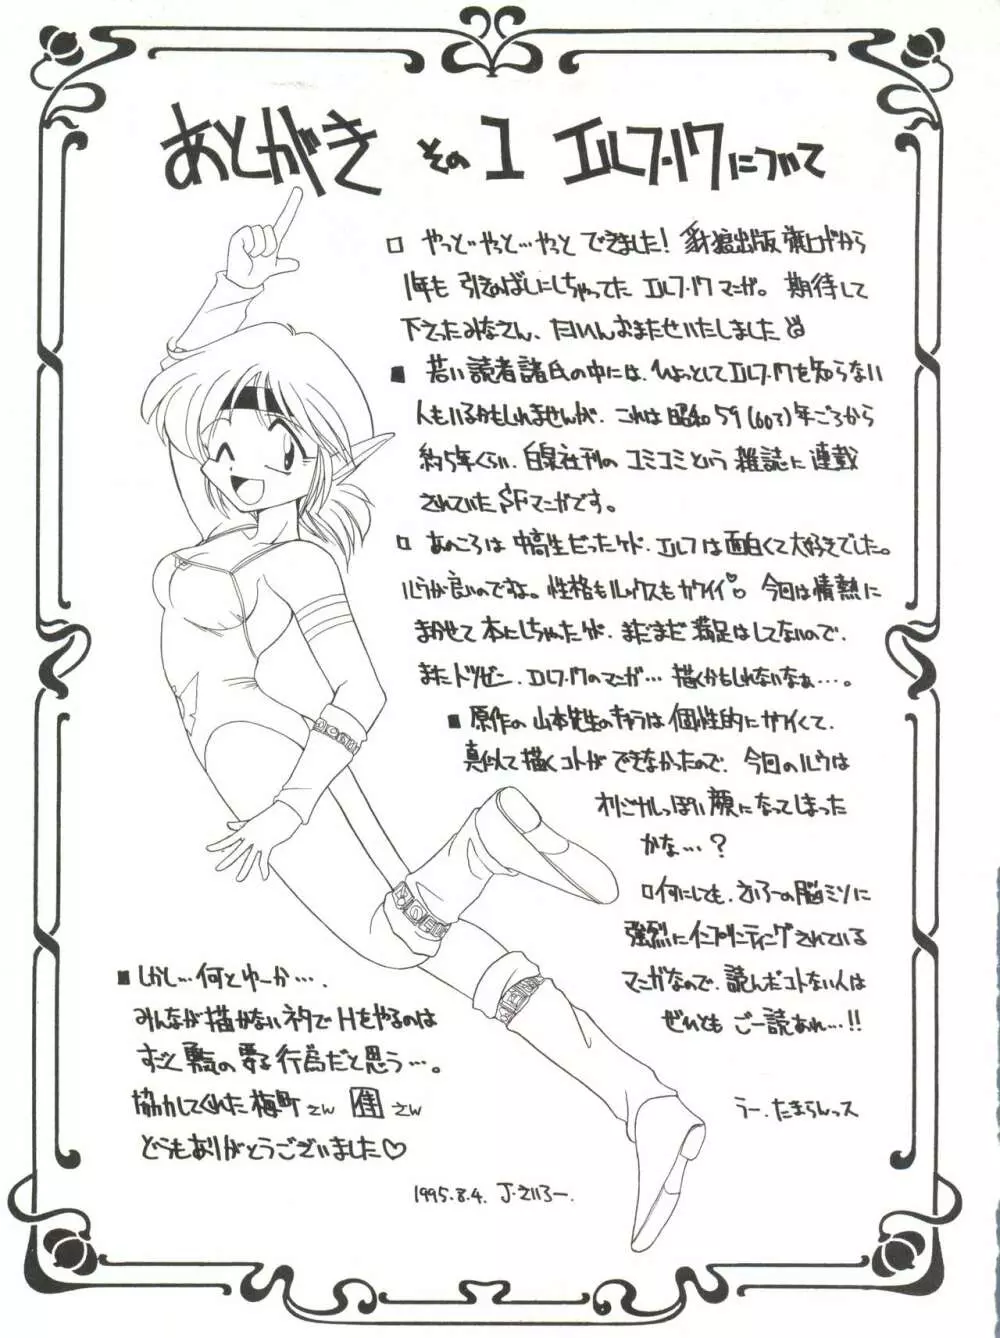 あとがき その1 エルフ・17について
□ やっと…やっと…やっとできました! 豺狼出版旗上げから
1年も引きのばしにしちゃってたエルフ・17マンガ。期待して
下さったみなさん、たいへんおまたせいたしました
■ 若い読者諸氏の中には、ひょっとしてエルフ・17を知らない
人もいるかもしれませんが、これは昭和59(60?)年ごろから
約5年くらい、白泉社刊のコミコミという雑誌に連載
されていたSFマンガです。
□ あのころは中高生だったケド、エルフは面白くて大好きでした。
ルウが良いのですね。性格もルックスもカワイイ♡ 今回は情熱に
まかせて本にしちゃったケド、まだまだ満足はしてないので、
またトツゼン、エルフ・17のマンガ…描くかもしれないなぁ…。
■ 原作の山本先生のキャラは個性的にカワイくて、
真似て描くコトができなかったので、今回のルウは
オリジナルっぽい顔になってしまった
かな…?
□何にしても、さいろーの脳ミソに
強烈にインプリンティングされている
マンガなので、読んだコトない人は
ぜひともご一読あれ…!!
うー、たまらんっス
■しかし…何とゆーか…、
みんなが描かないネタでHをやるのは
すごく勇気の要る行為だと思う…。
協力してくれた梅町さん 佳さん
どうもありがとうございました♡
1995.8.4. J・さいろー.